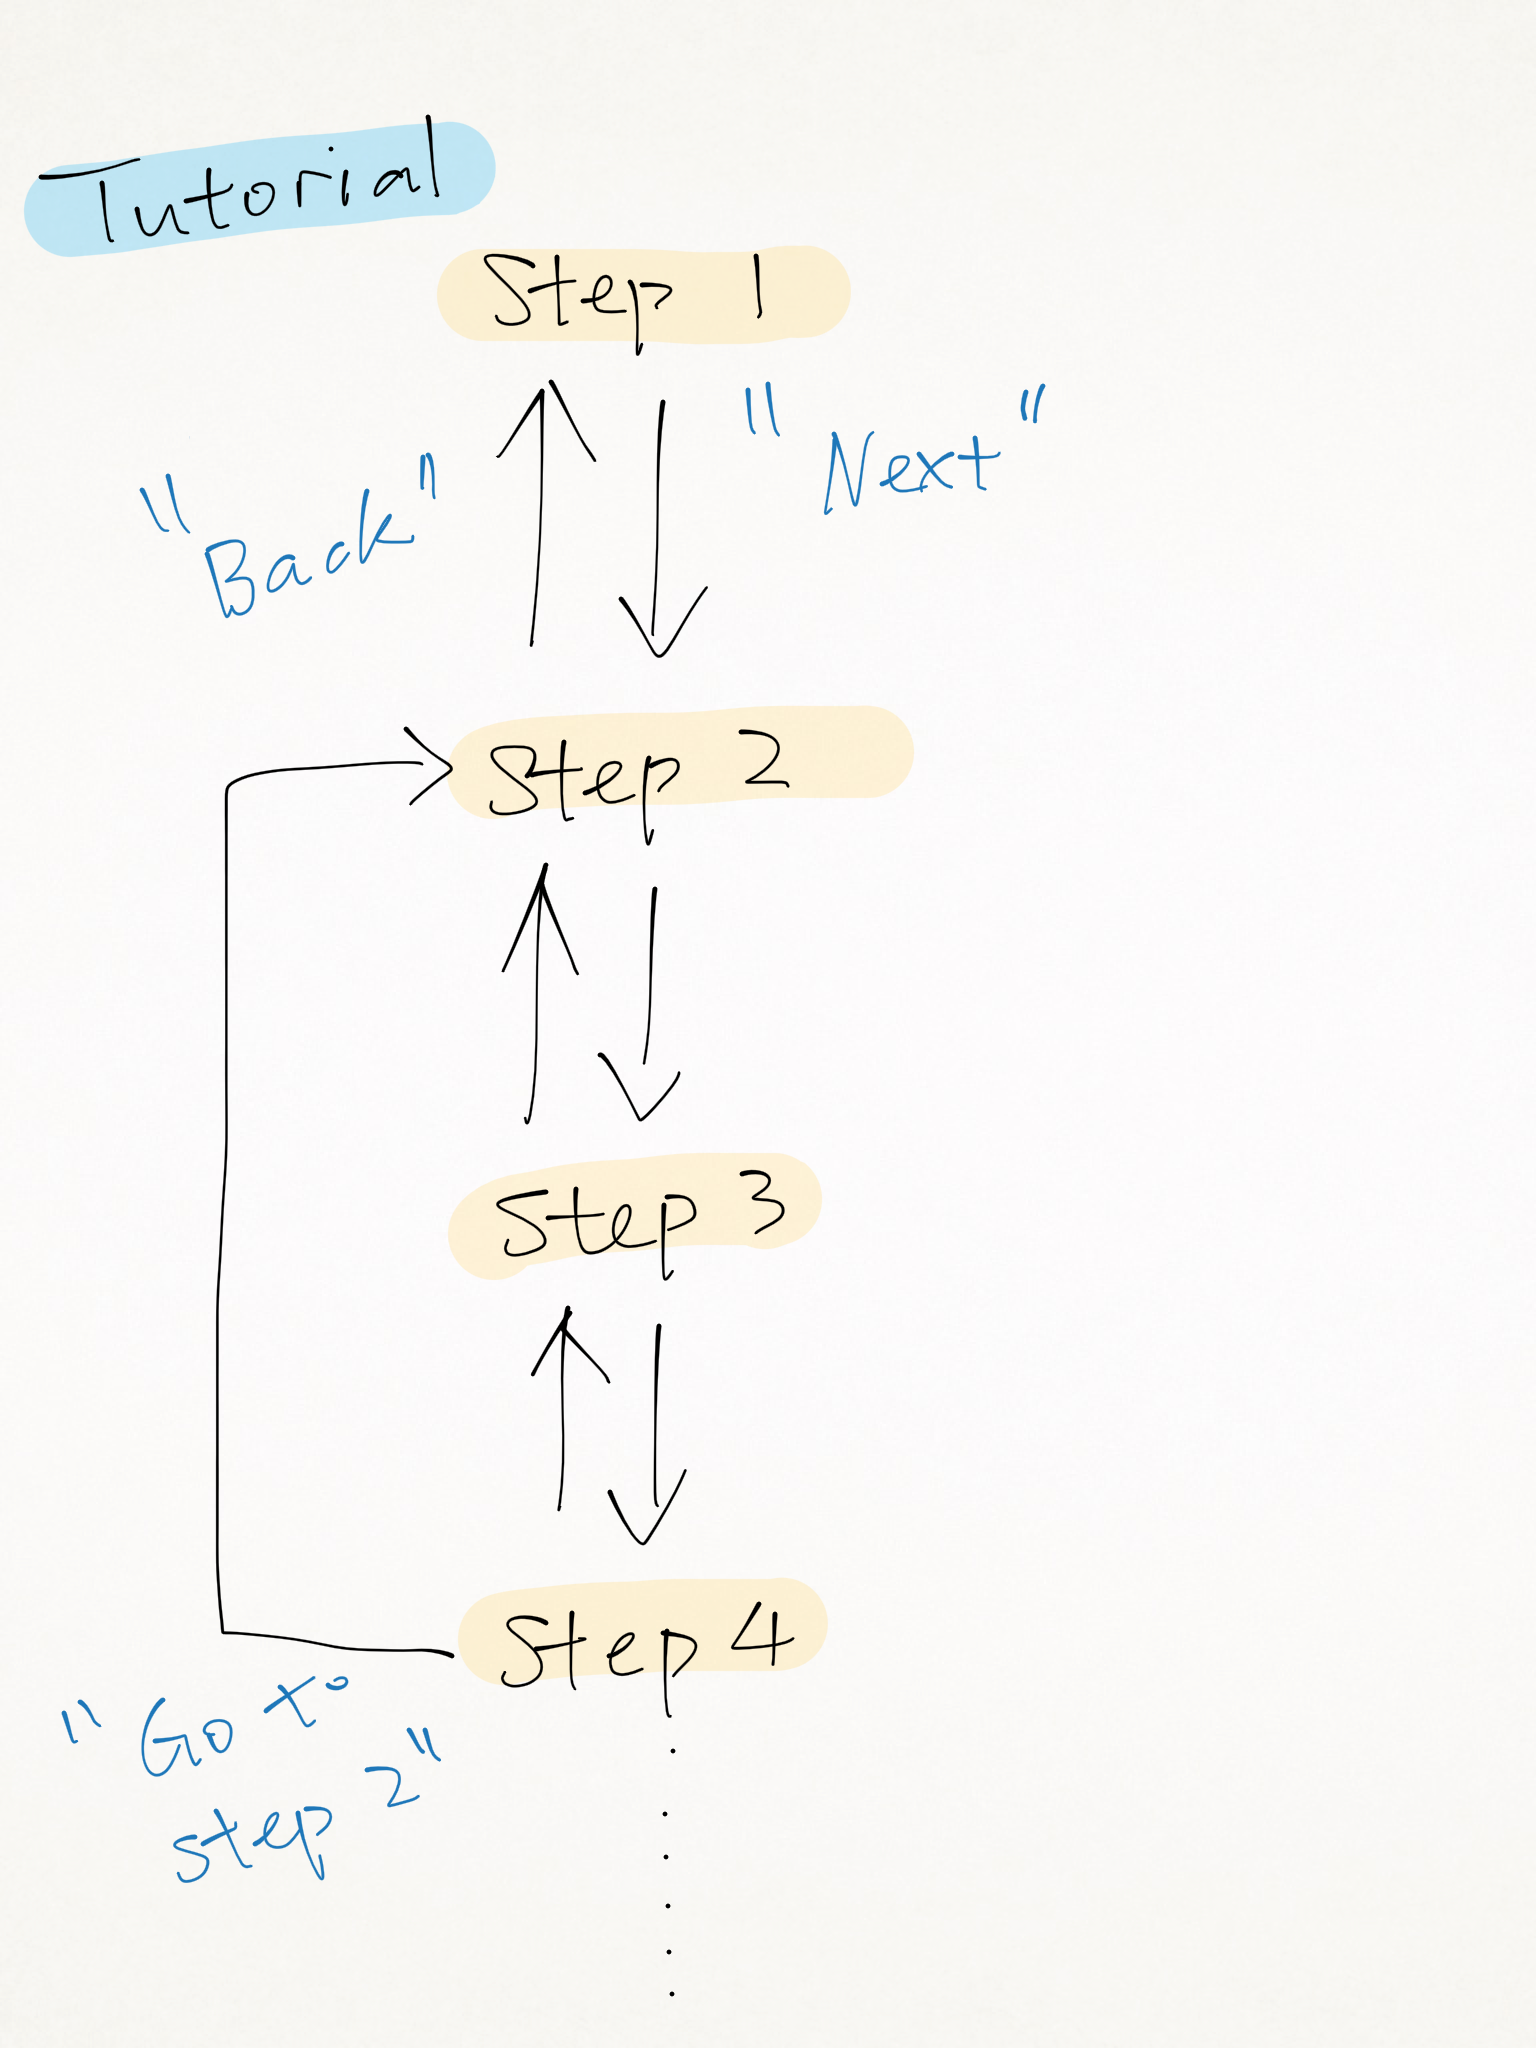 Tutorial
Step 1
"Next"
"Back"
Step 2
Step 3
Step 4
"Go to
step 2"